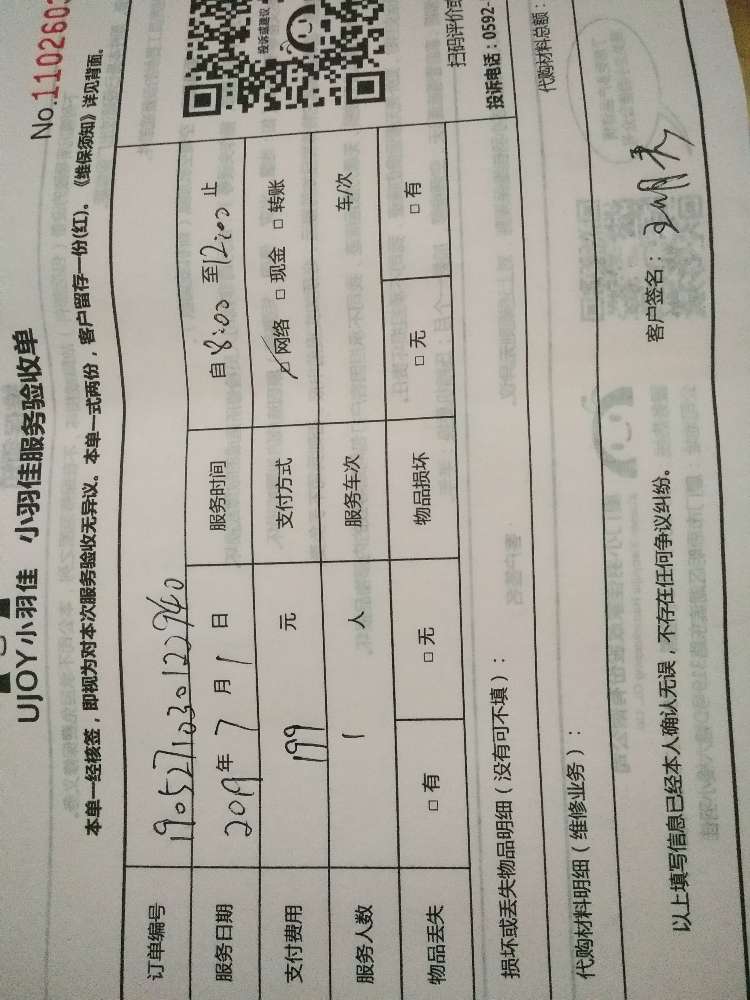 No.1102603
UJOY小羽佳 小羽佳服务验收单
本单一经核签，即视为对本次服务验收无异议。本单一式两份，客户留存一份(红)。《维保须知》详见背面。
订单编号 1905271030122940
服务日期 2019年 7 月 1 日 服务时间 自 8:00 至 12:00 止
支付费用 199 元 支付方式 □ 网络 □ 现金 □ 转账
服务人数 1 人 服务车次 车/次
物品丢失 □ 有 □ 无 物品损坏 □ 无 □ 有
投诉或建议
损坏或丢失物品明细（没有可不填）：
扫码评价或
投诉电话：0592-
代购材料明细（维修业务）：
代购材料总额：
以上填写信息已经本人确认无误，不存在任何争议纠纷。
客户签名：